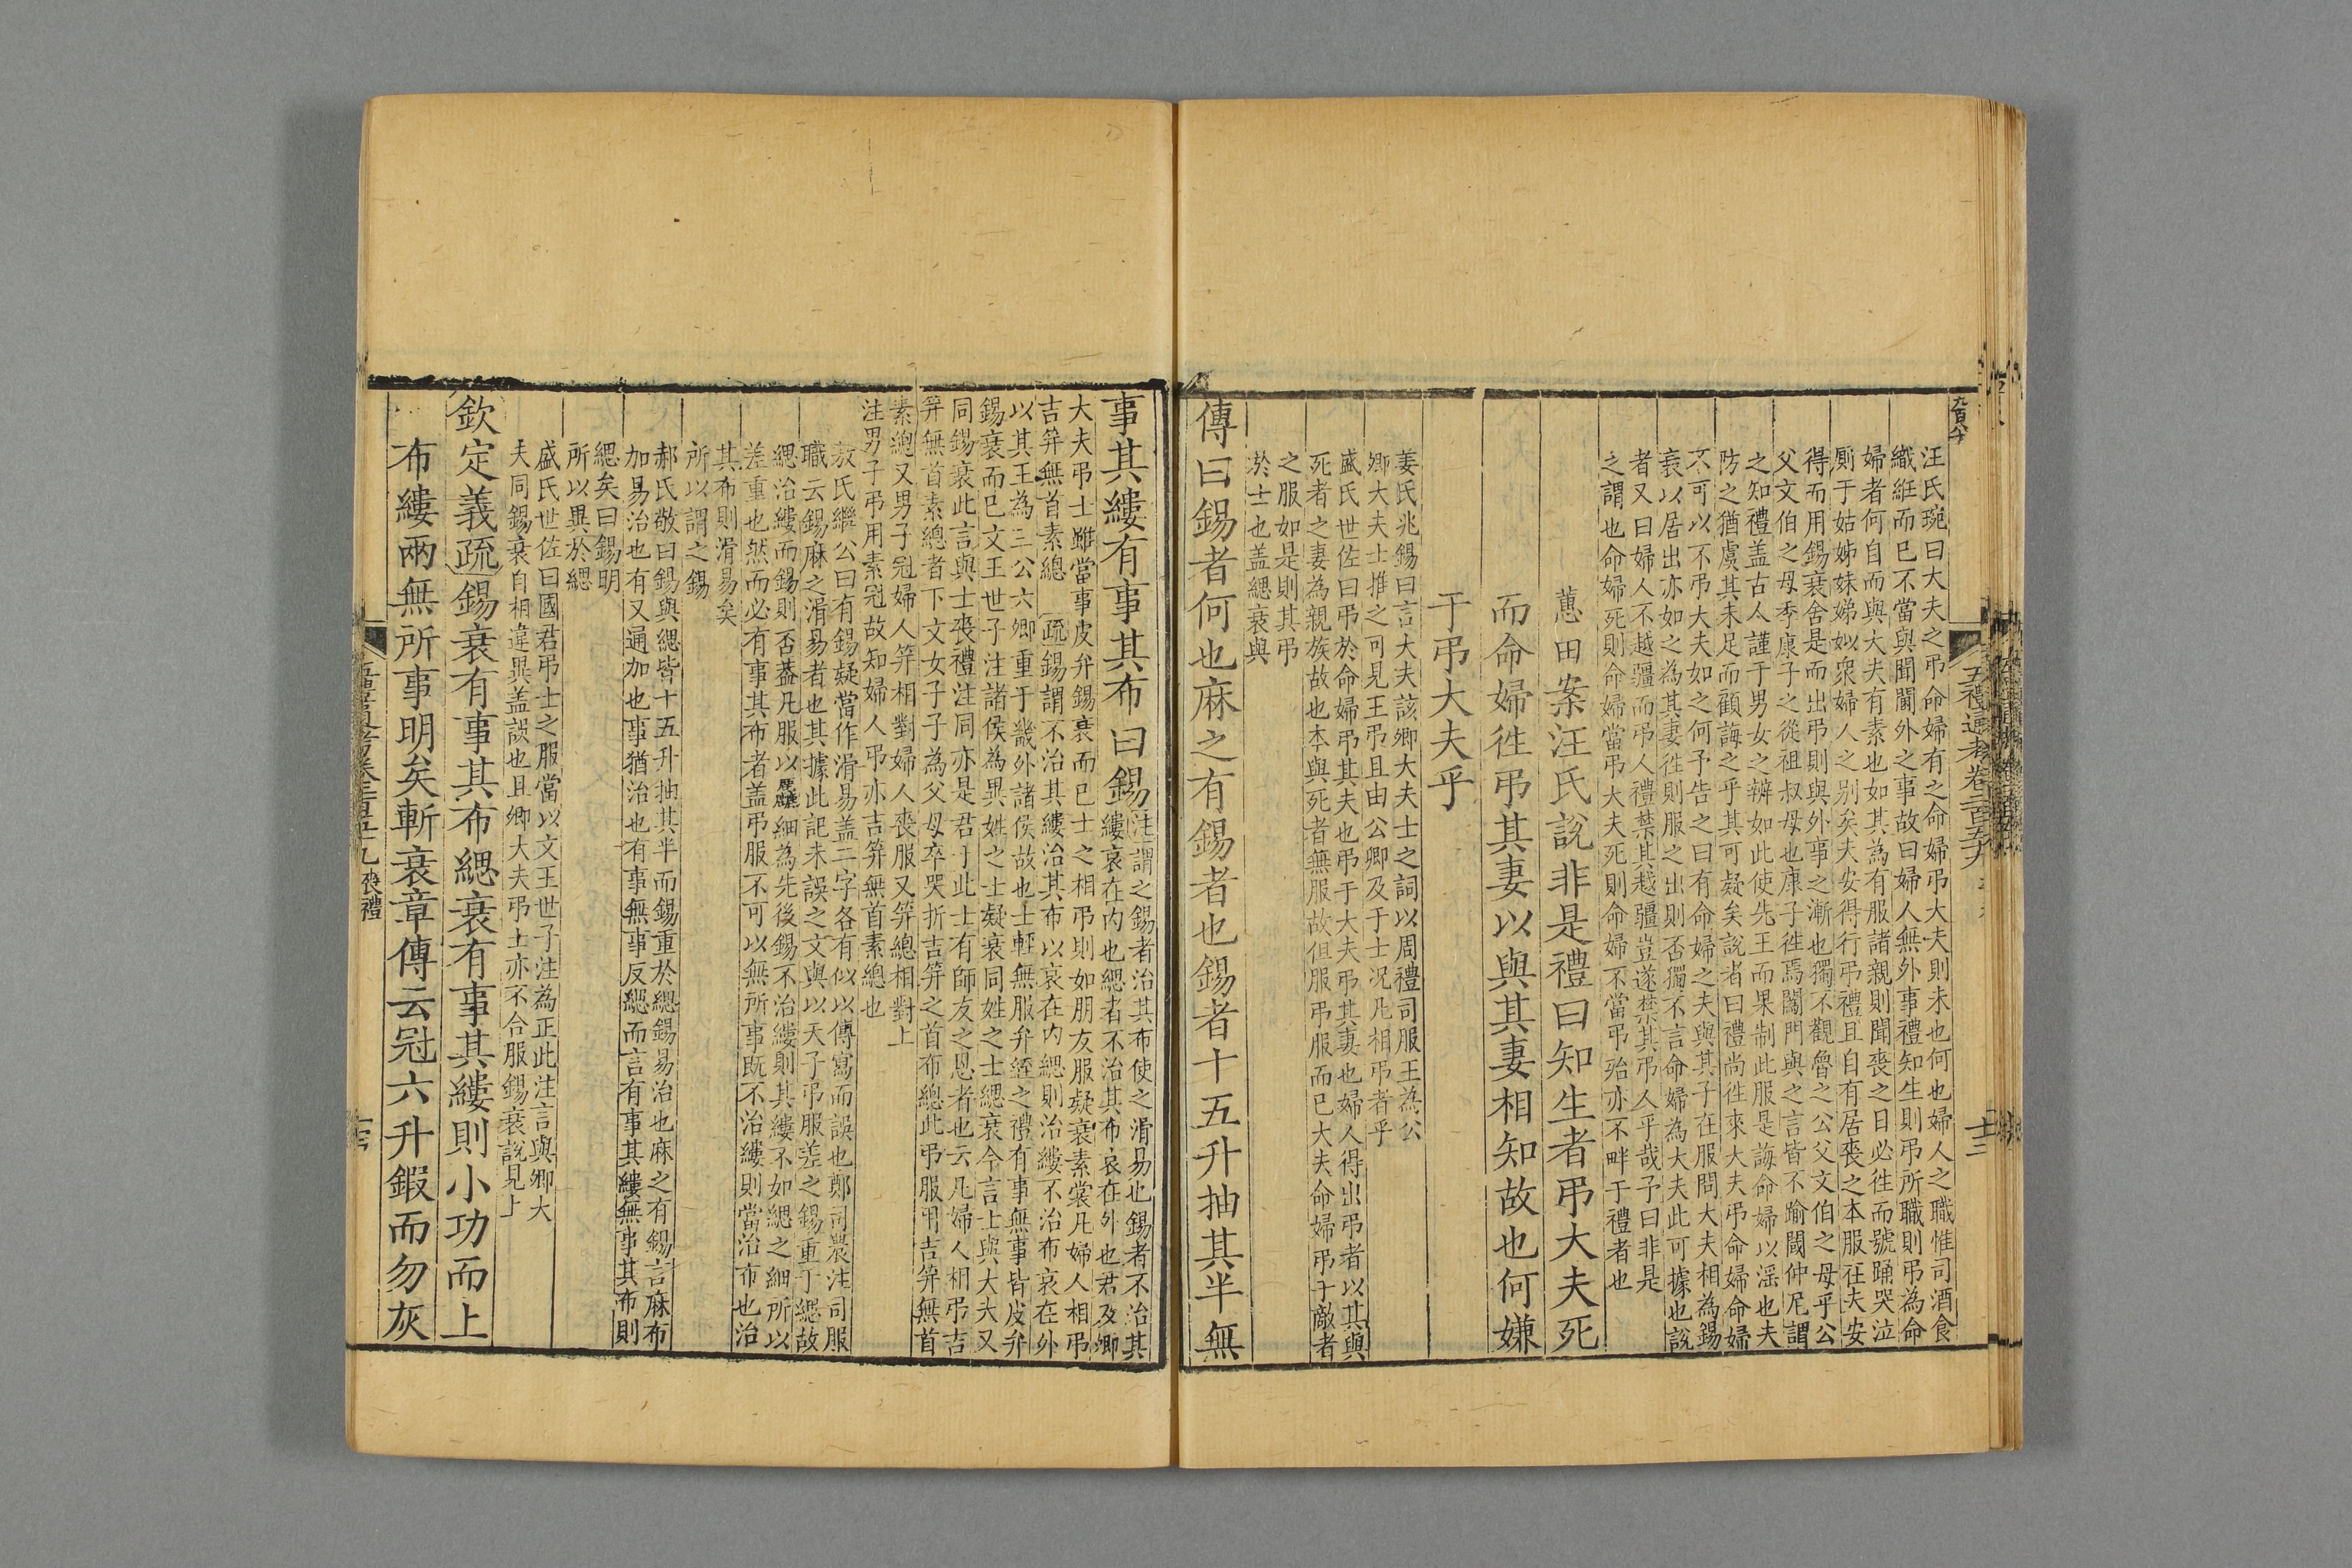 汪氏琬曰大夫之弔命婦有之命婦弔大夫則未也何也婦人之職惟司酒食
織紝而已不當與聞閫外之事故曰婦人無外事禮知生則弔所職則弔為命
婦者何自而與大夫有素也如其為有服諸親則聞喪之日必徃而號踊哭泣
厠于姑姊妹娣姒衆婦人之别矣夫安得行弔禮且自有居喪之本服在夫安
得而用錫衰舍是而出弔則與外事之漸也獨不觀魯之公父文伯之母乎公
父文伯之母季康子之從祖叔母也康子徃焉䦱門與之言皆不踰閾仲尼謂
之知禮盖古人謹于男女之辨如此使先王而果制此服是誨命婦以淫也夫
防之猶虞其未足而顧誨之乎其可疑矣說者曰禮尚徃來大夫弔命婦命婦
不可以不弔大夫如之何予告之曰有命婦之夫與其子在服問大夫相為錫
衰以居出亦如之為其妻徃則服之出則否獨不言命婦為大夫此可據也說
者又曰婦人不越疆而弔人禮禁其越疆豈遂禁其弔人乎哉予曰非是
之謂也命婦死則命婦當弔大夫死則命婦不當弔殆亦不畔于禮者也
蕙田案汪氏說非是禮曰知生者弔大夫死
而命婦徃弔其妻以與其妻相知故也何嫌
于弔大夫乎
姜氏兆錫曰言大夫該卿大夫士之詞以周禮司服王為公
卿大夫士推之可見王弔且由公卿及于士况凡相弔者乎
盛氏世佐曰弔於命婦弔其夫也弔于大夫弔其妻也婦人得出弔者以其與
死者之妻為親族故也本與死者無服故但服弔服而已大夫命婦弔于敵者
之服如是則其弔
於士也盖緦衰與
傳曰錫者何也麻之有錫者也錫者十五升抽其半無
事其縷有事其布曰錫注謂之錫者治其布使之滑易也錫者不治其
縷哀在内也緦者不治其布哀在外也君及卿
大夫弔士雖當事皮弁錫衰而已士之相弔則如朋友服疑衰素裳凡婦人相弔
吉笄無首素總 疏錫謂不治其縷治其布以哀在内緦則治縷不治布哀在外
以其王為三公六卿重于畿外諸侯故也士輕無服弁絰之禮有事無事皆皮弁
錫衰而已文王世子注諸侯為異姓之士疑衰同姓之士緦衰今言士與大夫又
同錫衰此言與士喪禮注同亦是君于此士有師友之恩者也云凡婦人相弔吉
笄無首素總者下文女子子為父母卒哭折吉笄之首布總此弔服用吉笄無首
素總又男子冠婦人笄相對婦人喪服又笄總相對上
注男子弔用素冠故知婦人弔亦吉笄無首素總也
敖氏繼公曰有錫疑當作滑易盖二字各有似以傳寫而誤也鄭司農注司服
職云錫麻之滑易者也其據此記未誤之文與以天子弔服差之錫重于緦故
緦治縷而錫則否葢凡服以麤細為先後錫不治縷則其縷不如緦之細所以
差重也然而必有事其布者盖弔服不可以無所事既不治縷則當治布也治
其布則滑易矣
所以謂之錫
郝氏敬曰錫與緦皆十五升抽其半而錫重於緦錫易治也麻之有錫言麻布
加易治也有又通加也事猶治也有事無事反緦而言有事其縷無事其布則
緦矣曰錫明
所以異於緦
盛氏世佐曰國君弔士之服當以文王世子注為正此注言與卿大
夫同錫衰自相違異盖誤也且卿大夫弔士亦不合服錫衰說見上
欽定義疏錫衰有事其布緦衰有事其縷則小功而上
布縷兩無所事明矣斬衰章傳云冠六升鍛而勿灰